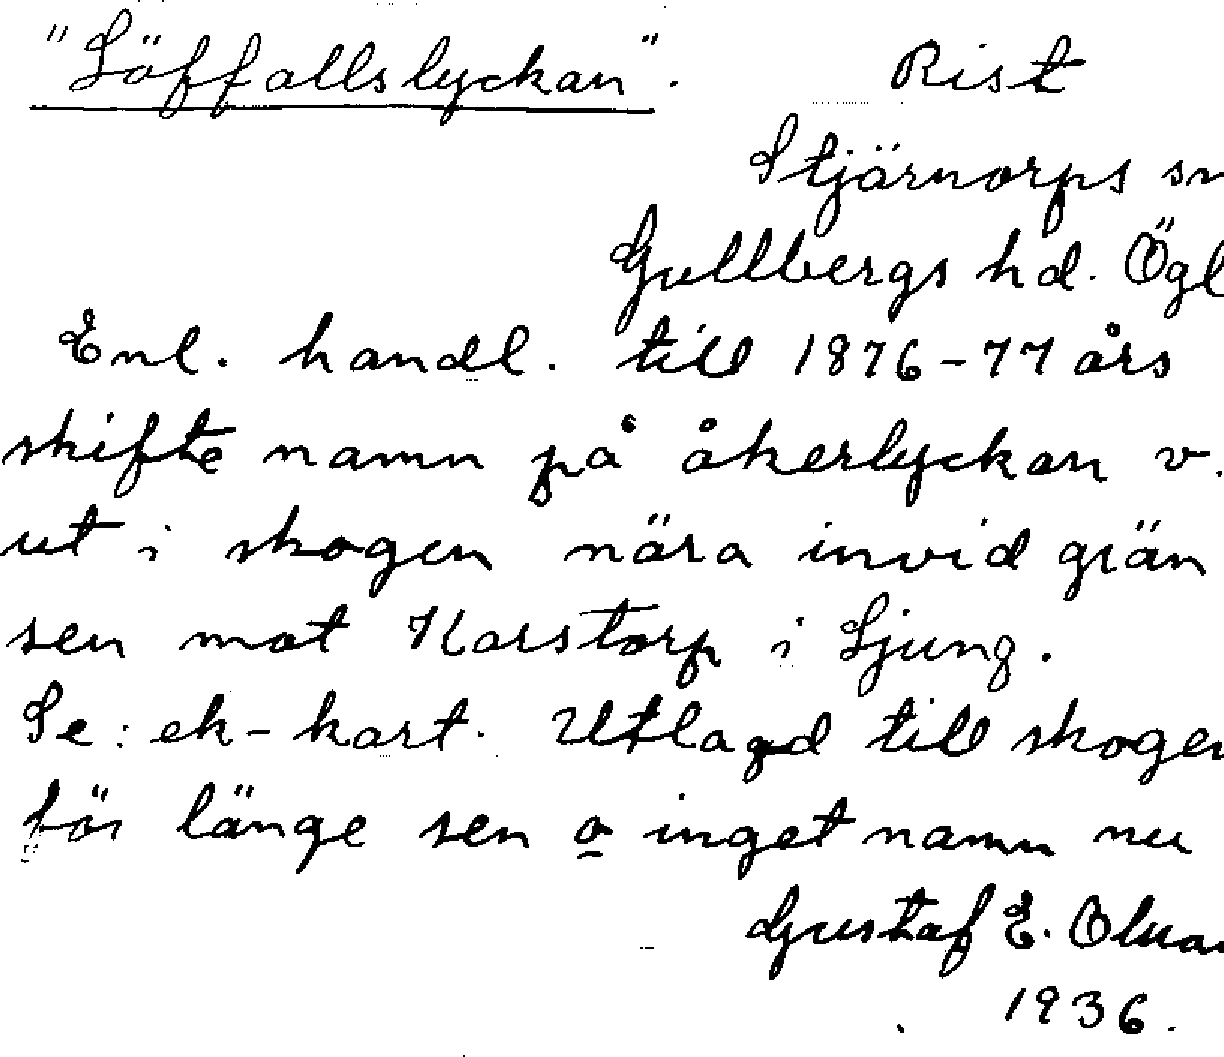 "Löffallslyckan". Rist
Stjärnorps sn
Gullbergs hd. Ögl
Enl. handl. till 1876-77 års
skifte namn på åkerlyckan v.
ut i skogen nära invid grän
sen mot Karstorp i Ljung.
Se: ek-kart. Utlagd till skogen
för länge sen o inget namn nu
Gustaf E.
1936.